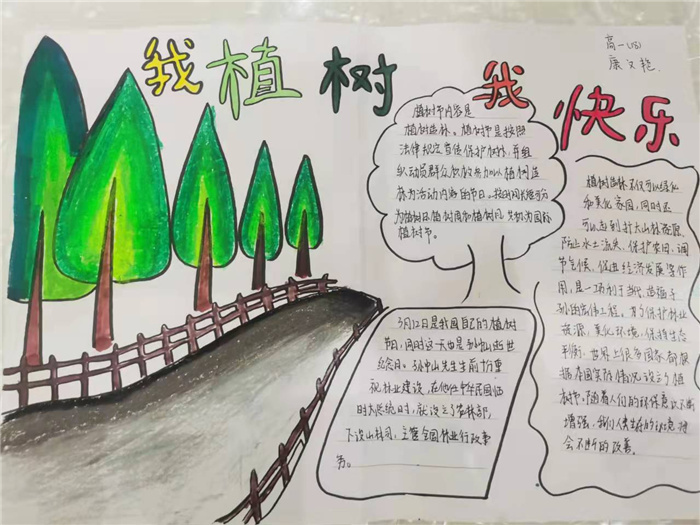 我植树 我快乐
高一(18)
康文艳
植树节内容是
植树造林。植树节是按照
法律规定宣传保护树木，并组
织动员群众积极参加以植树造
林为活动内容的节日。按时间长短可分
为植树日、植树周和植树月，共称为国际
植树节。
3月12日是我国自己的植树
节，同时这一天也是孙中山逝世
纪念日。孙中山先生生前十分重
视林业建设，在他任中华民国临
时大总统时，就设立了农林部，
下设山林司，主管全国林业行政事
务。
植树造林不仅可以绿化
和美化家园，同时还
可以起到扩大山林资源、
防止水土流失、保护农田、调
节气候、促进经济发展等作
用，是一项利于当代、造福子
孙的宏伟工程。为了保护林业
资源，美化环境，保持生态
平衡，世界上很多国家都根
据本国实际情况设立了植
树节。随着人们的环保意识不断
增强，我们人类生存的环境将
会不断的改善。